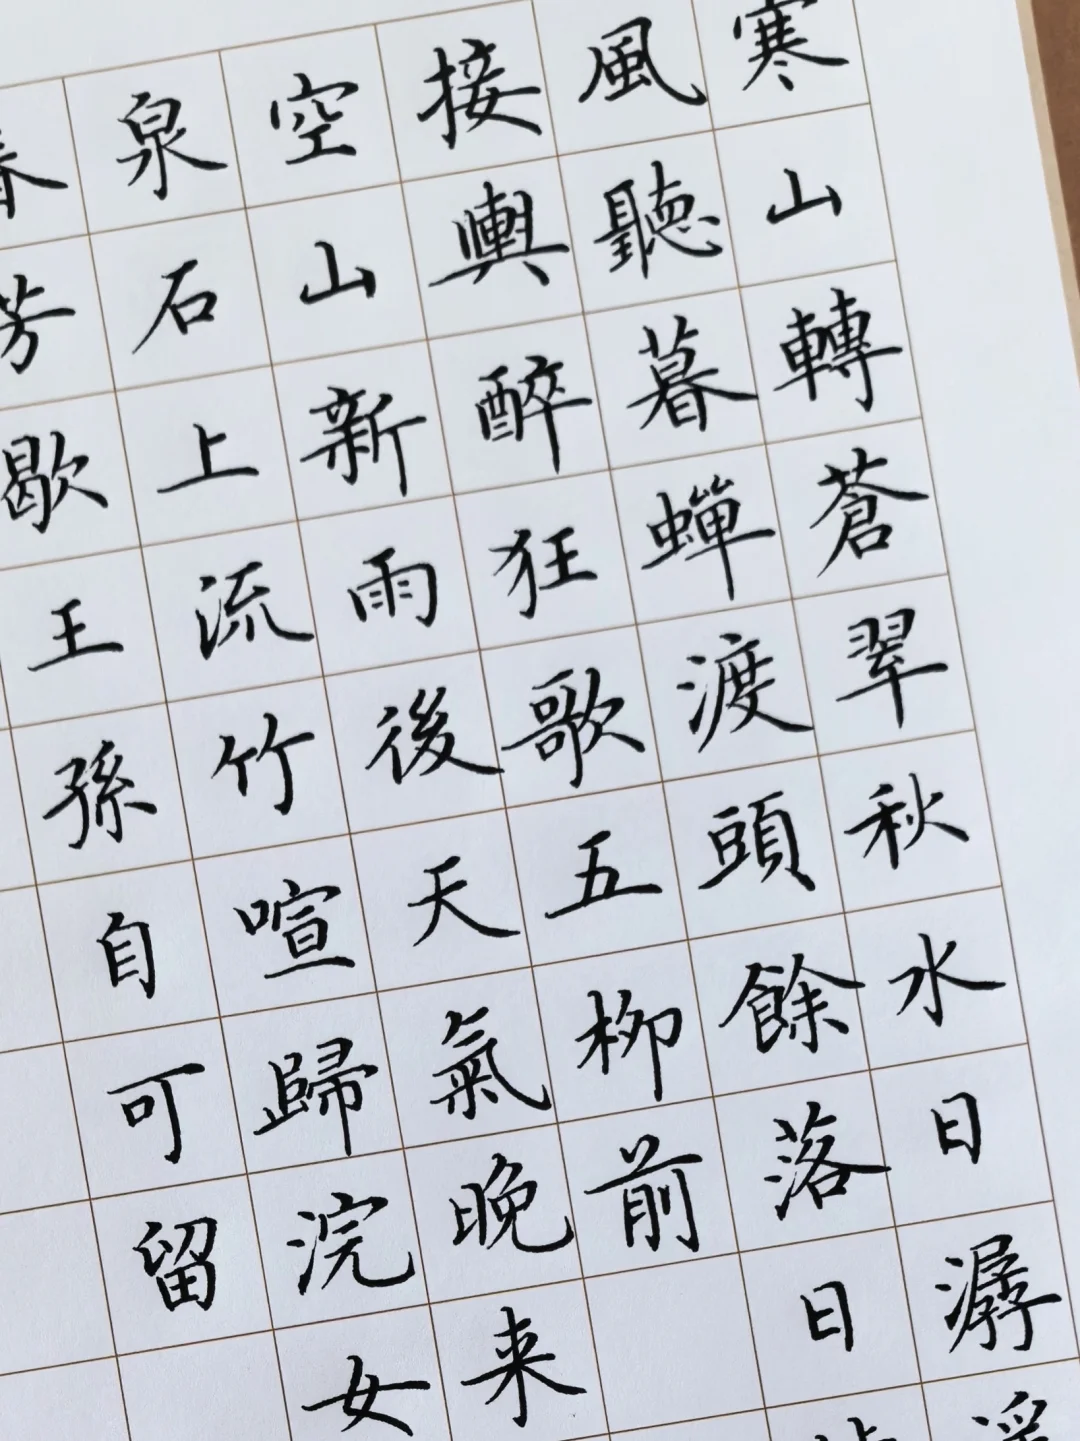 寒山轉蒼翠秋水日潺
風聽暮蟬渡頭餘落日
接輿醉狂歌五柳前
空山新雨後天氣晚来
泉石上流竹喧歸浣女
春芳歇王孫自可留